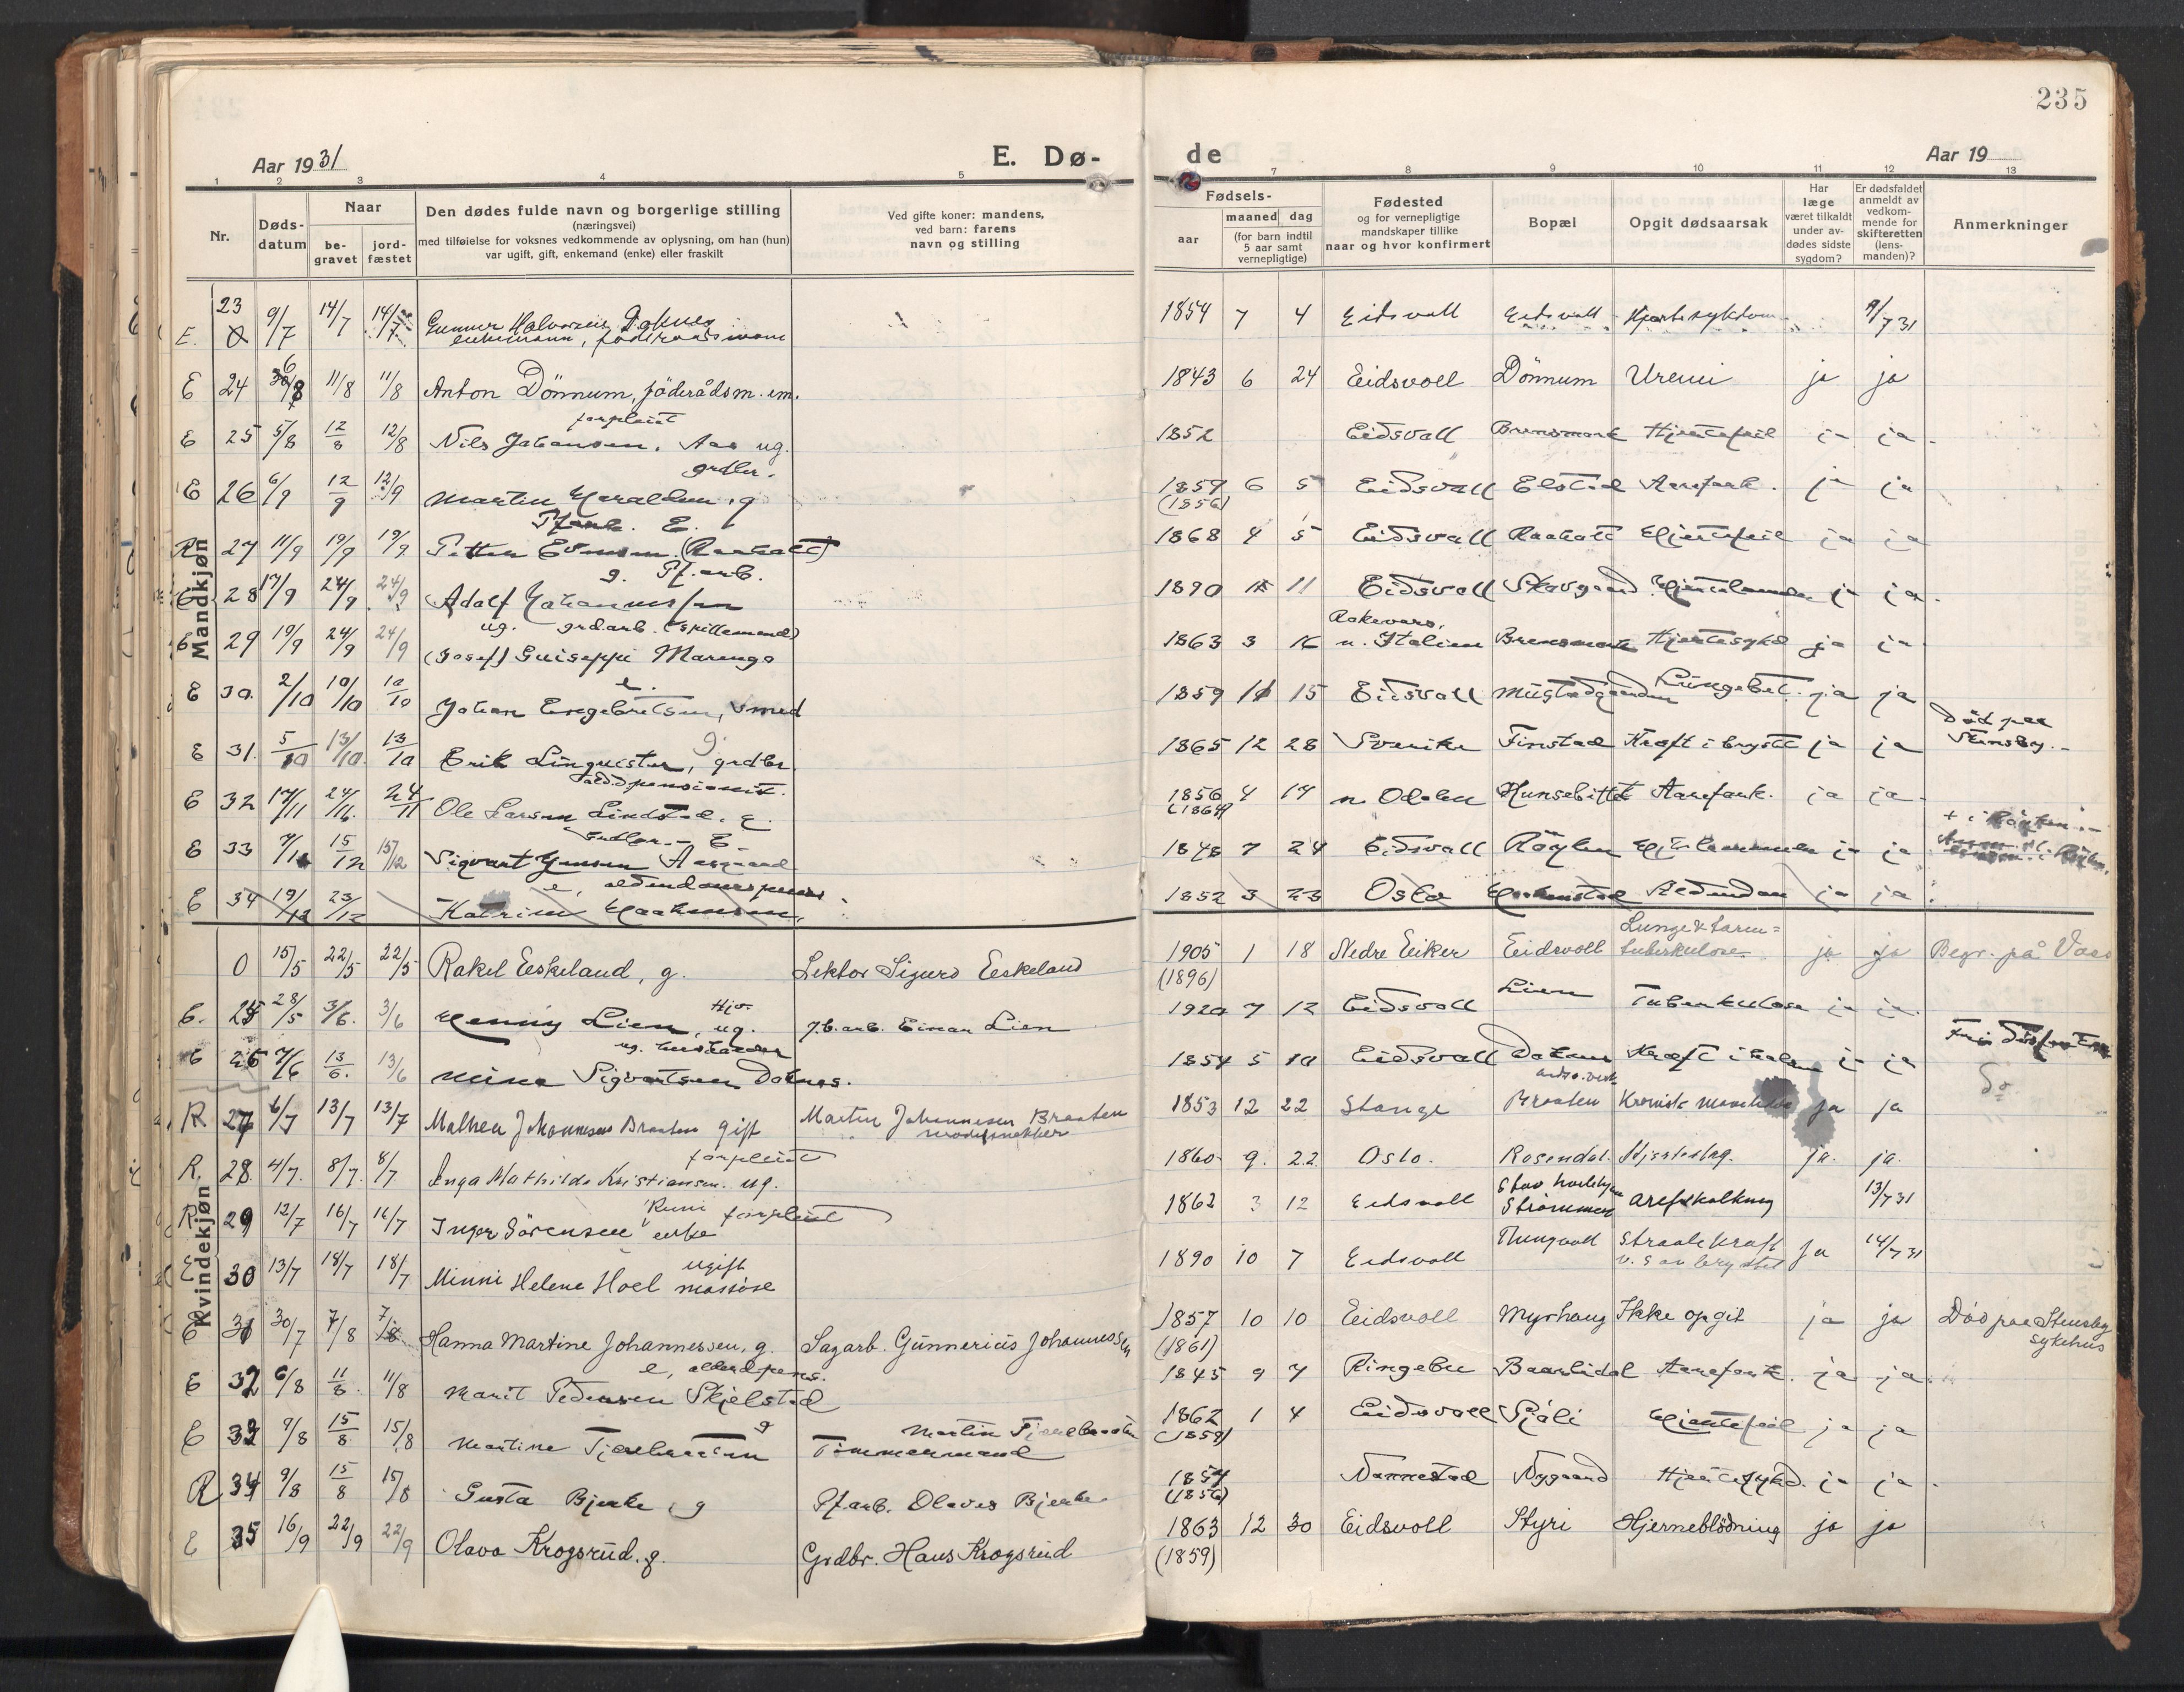 235
Aar 1931
E. Dø-
de
Aar 19
1 2 3 4 5 7 8 9 10 11 12 13
Nr.
Døds-
datum
Naar
be-
gravet
jord-
fæstet
Den dødes fulde navn og borgerlige stilling
(næringsvei)
med tilføielse for voksnes vedkommende av oplysning, om han (hun)
var ugift, gift, enkemand (enke) eller fraskilt
Ved gifte koner: mandens,
ved barn: farens
navn og stilling
Fødsels-
aar
maaned dag
(for barn indtil
5 aar samt
vernepligtige)
Fødested
og for vernepligtige
mandskaper tillike
naar og hvor konfirmert
Bopæl
Opgit dødsaarsak
Har
læge
været tilkaldt
under av-
dødes sidste
sygdom?
Er dødsfaldet
anmeldt av
vedkom-
mende for
skifteretten
(lens-
manden)?
Anmerkninger
Mandkjøn
E. 23 9/7 14/7 14/7 Gunnar Halvorsen Doknes 1854 7 4 Eidsvoll Eidsvoll Hjertesykdom 9/7 31
enkemann, föderaadsmann
E 24 6/8 11/8 11/8 Anton Dönnum, föderådsm. em. 1843 6 24 Eidsvoll Dönnum Uremi ja ja
forpleiet
E 25 5/8 12/8 12/8 Nils Johansen. Aas ug. 1852 Eidsvall Brensmork Hjertefeil ja ja
grdbr.
E 26 6/9 12/9 12/9 Martin Haraldsen, g 1857 6 5 Eidsvall Elstad Aarefork. ja ja
(1856)
Pf.arb. E.
R 27 11/9 19/9 19/9 Petter Evensen (Raaholt) 1868 4 5 Eidsvall Raaholt Hjertefeil ja ja
g. Pf. arb.
E 28 17/9 24/9 24/9 Adolf Johannessen 1890 11 Eidsvall Skovgaard ja ja
ug. grd.arb. (spillemand)
E 29 19/9 24/9 24/9 (Josef) Guiseppi Marengo 1863 3 16 n. Italien Brensmork Hjertesykd ja ja
e.
E 30. 2/10 10/10 10/10 Johan Engebretsen, smed 1859 11 15 Eidsvall Mustadgaarden Lungebet. ja ja
g.
E 31. 5/10 13/10 13/10 Erik Linqvister, grdbr. 1865 12 28 Sverike Finstad Kræft i brystet ja ja Död paa
Stensby.
aldd.pensionist.
E 32 17/11 24/11 24/11 Ole Larsen Lindstad. g. 1856 4 17 n. Odalen Hunsebittet Aarefork. ja ja
(1864)
E.
E 33 7/12 15/12 15/12 Sigvart Jensen Aasgaard 1848 7 24 Eidsvall Röglen ja ja
e, alderdomspens.
E 34 19/12 23/12 Katrine Haakensen, 1852 3 23 Oslo Alderdom ja ja
Kvindekjøn
0 15/5 22/5 22/5 Rakel Eeskeland, g. Lektor Sigurd Eeskeland 1905 1 18 Nedre Eiker Eidsvoll Lunge & tarm=
tuberkulose ja ja Begr. på Voss
(1896)
E. 25 28/5 3/6. 3/6 Henny Lien, ug. J.b.arb. Einar Lien 1920 7 12 Eidsvoll Lien Tuberkulose ja ja.
ug. husholder
E 26 7/6 13/6. 13/6 Mina Sigvartsen Doknes. 1854 5 10 Eidsvall Doknes Kræft i ja ja
R 27 6/7 13/7 13/7 Mathea Johannesen Braaten gift Martin Johannesen Braaten 1853 12 22 Stange Braaten Kronisk ja ja
modelsnekker
forpleiet
R. 28. 4/7. 8/7. 8/7 Inga Mathilde Kristiansen. ug. 1860. 9. 22. Oslo. Rosendal. Hjerteslag. ja. ja.
Runi forpleiet
R. 29 12/7 16/7 16/7 Inger Sörensen enke 1862 3 12 Eidsvoll Strömmen Arefokalkning 13/7 31
ugift
E 30 13/7 18/7 18/7 Minni Helene Hoel massöse 1890 10 7 Eidsvoll Thungvoll Straalekraft
v. S av brystet ja 14/7 31
E 31 30/7 7/8 7/8 Hanna Martine Johannessen, g. Sagarb. Gunnerius Johannessen 1857 10 10 Eidsvoll Myrhaug Ikke opgit ja ja Död paa Stensby
sykehus
(1861)
e, alderd.pens.
E 32 6/8 11/8. 11/8 Marit Pedersen Skjelstad 1845 9 7 Ringebu Baarlidal Aarefork. ja ja.
E 33 9/8 15/8 15/8 Martine Fjeldbraaten g Martin Fjeldbraaten
Tömmermand 1862 1 4 Eidsvoll Sjöli Hjertefeil ja ja
(1859)
R 34 9/8 15/8 15/8 Gusta Bjerke, g Pf.arb. Olaves Bjerke 1857 Nannestad Nygaard Hjertesykd. ja ja
(1856)
E 35 16/9 22/9 22/9 Olava Krogsrud. g. Grdbr. Hans Krogsrud 1863 12 30 Eidsvoll Styri Hjerneblödning ja ja
(1859)